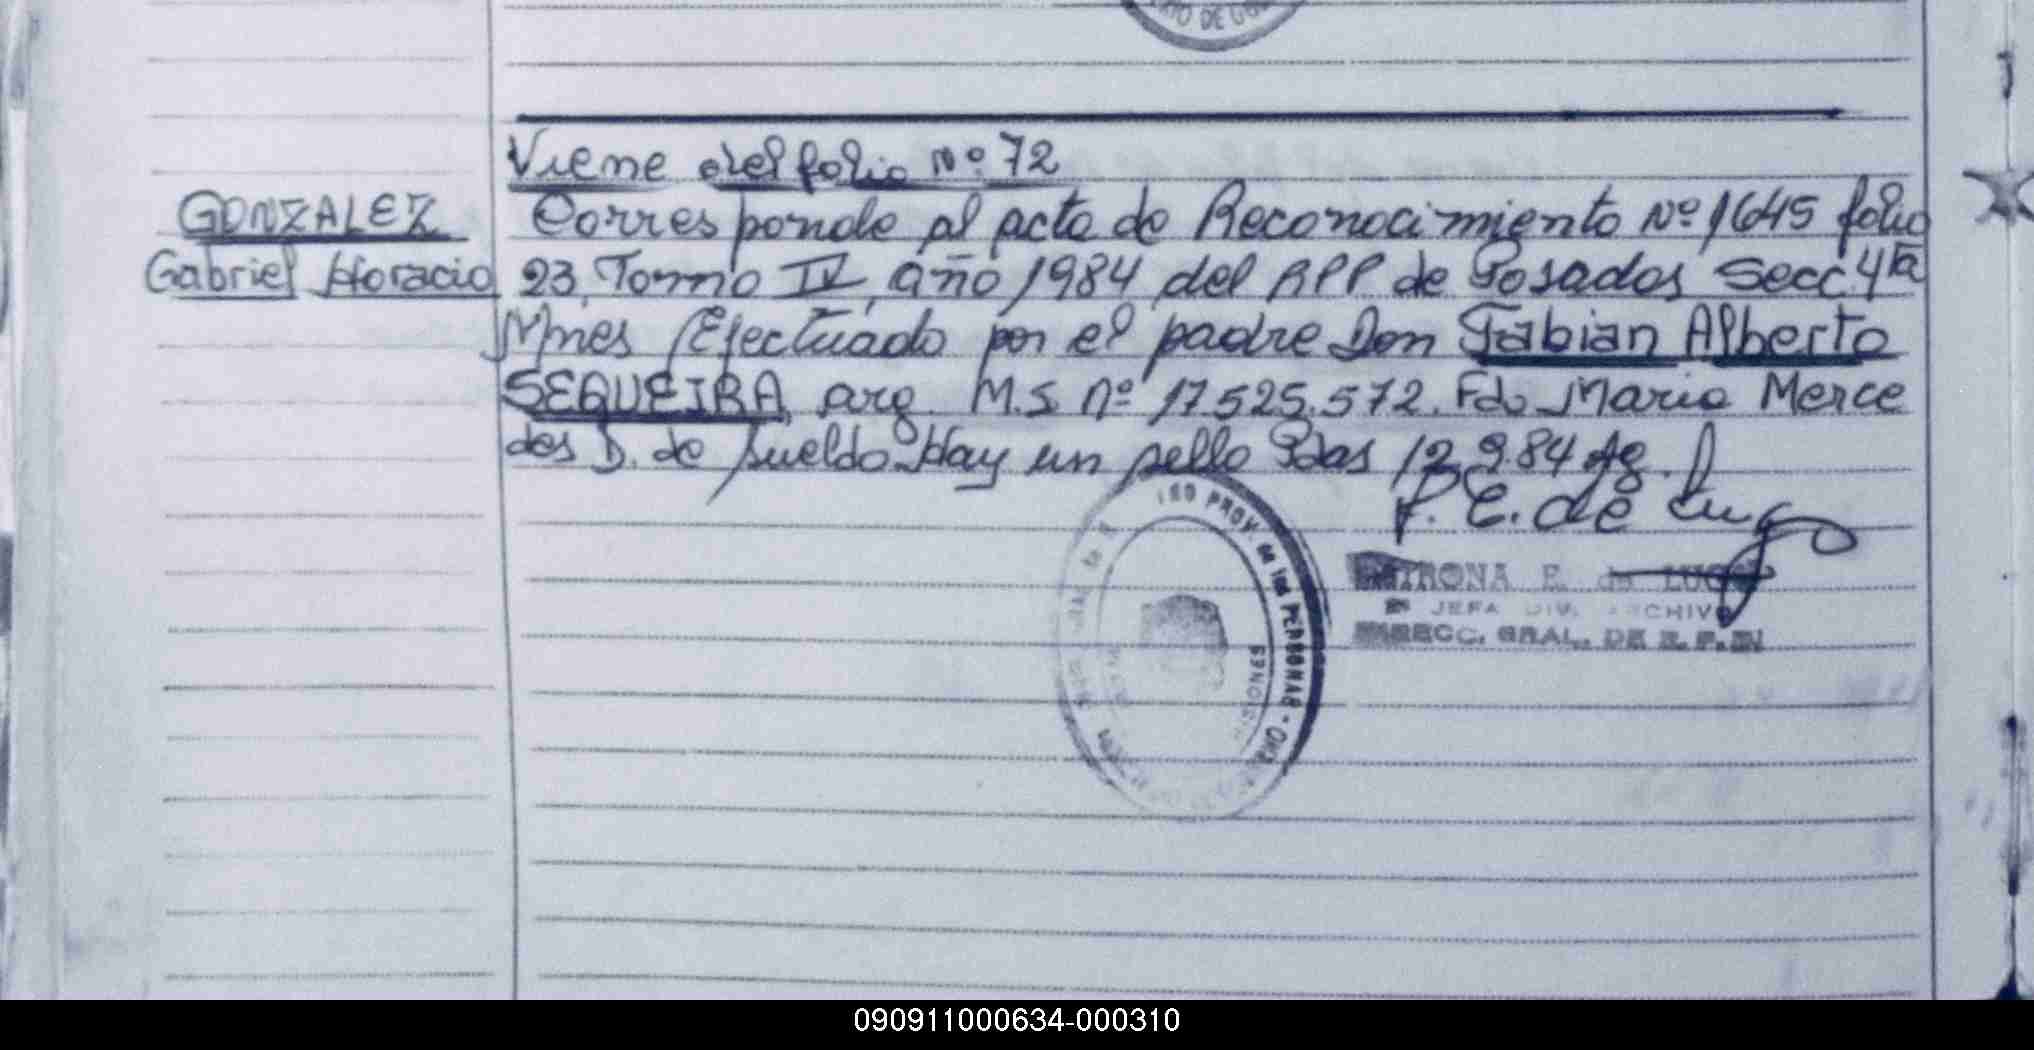 Viene del folio Nº 72
GONZALEZ
Gabriel Horacio
Corresponde al acta de Reconocimiento Nº 1645 folio
23, Tomo IV, año 1984 del RPP de Posadas Secc. 4ta
Mnes Efectuado por el padre Don Fabian Alberto
SEQUEIRA, arg. M.I. nº 17.525.572. Fdo Maria Merce
des D. de Sueldo. Hay un sello Pdas 12.9.84 Ag.
P. E. de Lugo
PETRONA E. de LUGO
JEFA DIV. ARCHIVO
DIRECC. GRAL. DE R. P.
PROV. de las PERSONAS
MISIONES
090911000634-000310